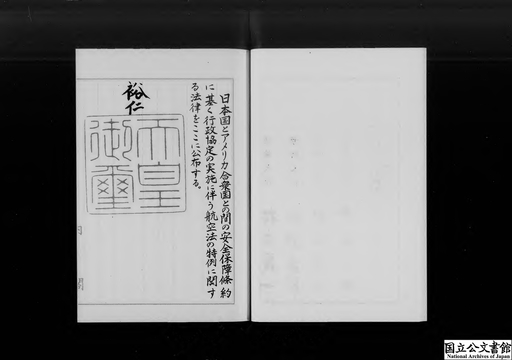 日本国とアメリカ合衆国との間の安全保障條約
に基く行政協定の実施に伴う航空法の特例に関す
る法律をここに公布する。
裕仁
天皇
御璽
国立公文書館
National Archives of Japan